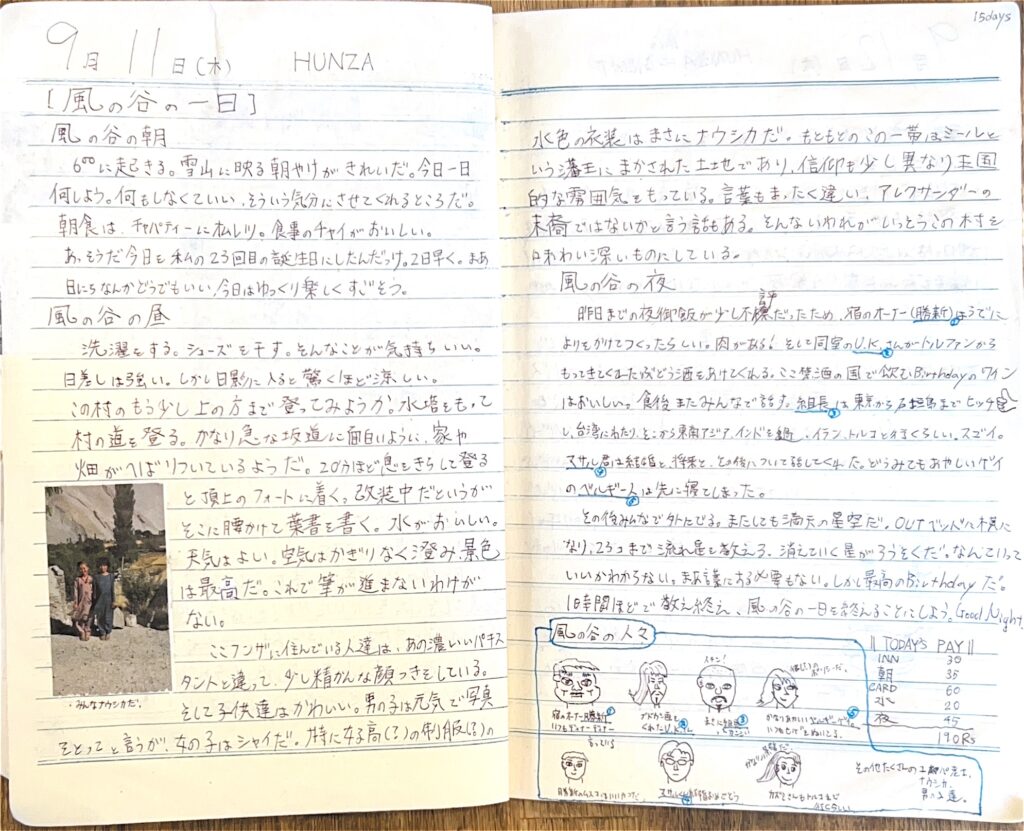 9月11日(木) HUNZA
[風の谷の一日]
風の谷の朝
6⁰⁰に起きる。雪山に映る朝やけがきれいだ。今日一日
何しよう。何もしなくていい、そういう気分にさせてくれるところだ。
朝食は、チャパティーにオムレツ。食事のチャイがおいしい。
あ、そうだ今日を私の23回目の誕生日にしたんだっけ。2日早く。まあ
日にちなんかどうでもいい、今日はゆっくり楽しくすごそう。
風の谷の昼
洗濯をする。シューズを干す。そんなことが気持ちいい。
日差しは強い。しかし日影に入ると驚くほど涼しい。
この村のもう少し上の方まで登ってみようか。水塔をもって
村の道を登る。かなり急な坂道に面白いように、家や
畑がへばりついているようだ。20分ほど息をきらして登る
と頂上のフォートに着く。改装中だというが
そこに腰かけて葉書を書く。水がおいしい。
天気はよい。空気はかぎりなく澄み、景色
は最高だ。これで筆が進まないわけが
ない。
ここフンザに住んでいる人達は、あの濃いいパキス
タントと違って、少し精かんな顔つきをしている。
そして子供達はかわいい。男の子は元気で写真
をとってと言うが、女の子はシャイだ。特に女子高(?)の制服(?)の
・みんなナウシカだ。
15days
水色の衣装はまさにナウシカだ。もともとこの一帯はミールと
いう藩主にまかされた土地であり、信仰も少し異なり王国
的な雰囲気をもっている。言葉もまったく違い、アレクサンダーの
末裔ではないかと言う話もある。そんないわれがいっそうこの村を
味わい深いものにしている。
風の谷の夜
昨日までの夜御飯が少し不評だったため、宿のオーナー(勝新)①はうでに
よりをかけてつくったらしい。肉がある! そして同室のU.K.②さんがトルファンから
もってきてくれたぶどう酒をあけてくれる。ここ禁酒の国で飲むBirthdayのワイン
はおいしい。食後またみんなで話す。組長③は東京から石垣島までヒッチ
し、台湾にわたり、そこから東南アジア、インドを過、イラン、トルコと行くらしい。スゴイ。
マサル君は結婚と、将来と、その後について話してくれた。どうみてもあやしいゲイ
のベルギー人は先に寝てしまった。
その後みんなで外にでる。またしても満天の星空だ。OUTベッドに横に
なり、23コまで流れ星を数える。消えていく星がろうそくだ。なんていって
いいかわからない。また言葉にする必要もない。しかし最高のBirthdayだ。
1時間ほどで数え終え、風の谷の一日を終えることにしよう。Good Night.
風の谷の人々
宿のオーナー勝新①
ブドウ酒を
くれたU.K.さん
まさに組長③
マサルくん結婚おめでとう
その他たくさんの
ナウシカ、
男の子達。
|| TODAY'S PAY ||
INN 30
朝 35
CARD 60
水 20
夜 45
190Rs